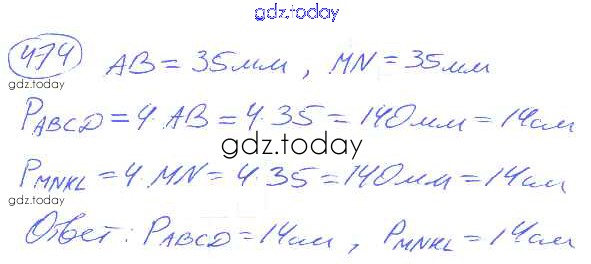 gdz.today
474 AB = 35мм, MN = 35мм
gdz.today
P_ABCD = 4·AB = 4·35 = 140мм = 14см
gdz.today
gdz.today
P_MNKL = 4·MN = 4·35 = 140мм = 14см
gdz.today
Ответ: P_ABCD = 14см, P_MNKL = 14см